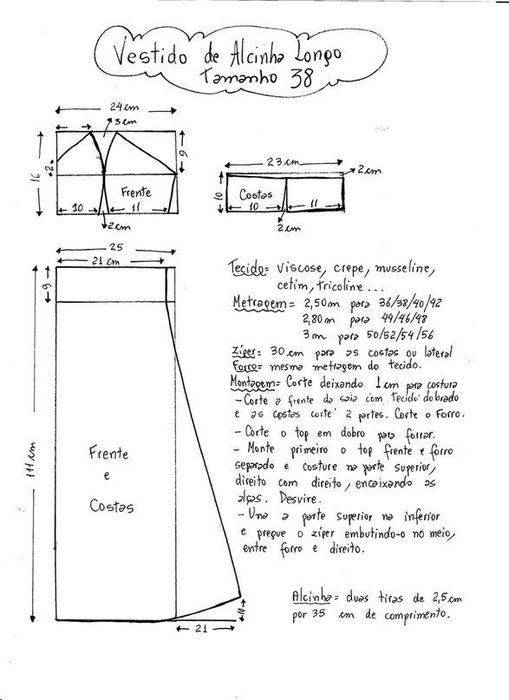 Vestido de Alcinha Longo
Tamanho 38
24 cm
3 cm
16
2
9
Frente
10
11
2 cm
23 cm
2 cm
10
Costas
10
11
2 cm
25
21 cm
9
111 cm
Frente
e
Costas
11
21
Tecido= viscose, crepe, musseline,
cetim, tricoline...
Metragem= 2,50m para 36/38/40/42
2,80m para 44/46/48
3m para 50/52/54/56
Zíper= 30 cm para as costas ou lateral
Forro= mesma metragem do tecido.
Montagem= Corte deixando 1 cm para costura
- Corte a frente da saia com tecido dobrado
e as costas corte 2 partes. Corte o Forro.
- Corte o top em dobro para forrar.
- Monte primeiro o top frente e forro
separado e costure na parte superior,
direito com direito, encaixando as
alças. Desvire.
- Una a parte superior na inferior
e pregue o zíper embutindo-o no meio,
entre forro e direito.
Alcinha= duas tiras de 2,5cm
por 35 cm de comprimento.